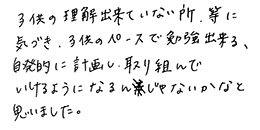 子供の理解出来ていない所、等に
気づき、子供のペースで勉強出来る、
自発的に計画し、取り組んで
いけるようになるんじゃないかなと
思いました。